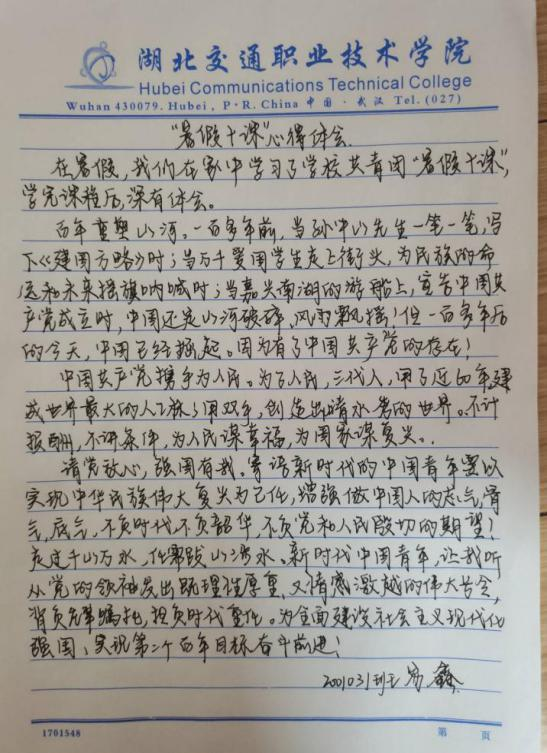 湖北交通职业技术学院
Hubei Communications Technical College
Wuhan 430079. Hubei, P·R. China 中国·武汉 Tel. (027)
“暑假十课”心得体会
在暑假，我们在家中学习了学校共青团“暑假十课”，
学完课程后，深有体会。
百年重塑山河。一百多年前，当孙中山先生一笔一笔，写
下《建国方略》时；当万千爱国学生走上街头，为民族的命
运和未来摇旗呐喊时；当嘉兴南湖的游船上，宣告中国共
产党成立时，中国还是山河破碎、风雨飘摇！但一百多年后
的今天，中国已经掘起。因为有了中国共产党的存在！
中国共产党携手为人民。为了人民，三代人，用了近60年建
成世界最大的人工林；用双手，创造出清水的世界。不计
报酬，不讲条件，为人民谋幸福，为国家谋复兴。
请党放心，强国有我。寄语新时代的中国青年要以
实现中华民族伟大复兴为己任，增强做中国人的志气、骨
气、底气，不负时代，不负韶华，不负党和人民殷切的期望！
走过千山万水，仍需跋山涉水。新时代中国青年，让我听
从党的领袖发出既理性厚重，又情感激越的伟大号令，
背负先辈嘱托，担负时代重任。为全面建设社会主义现代化
强国、实现第二个百年目标奋斗前进！
2001031班
1701548
第 页